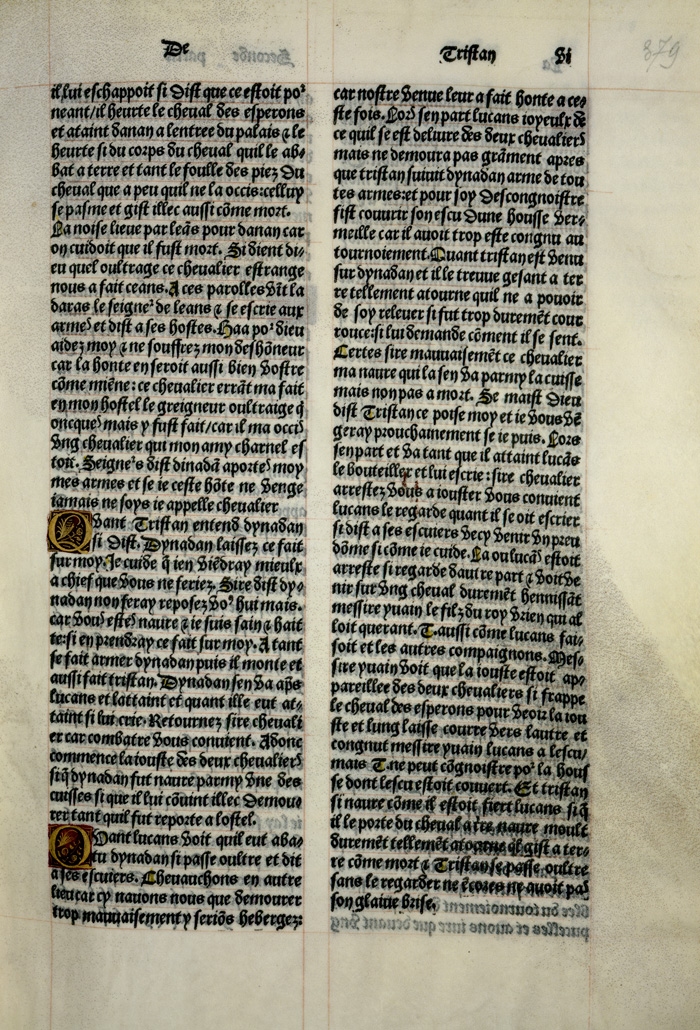 De
Tristan
vi
879
il lui eschappoit si dist que ce estoit poꝰ
neant/il heurte le cheval des esperons
et ataint danan a lentree du palais ⁊ le
heurte si du corps du cheval quil le ab⸗
bat a terre et tant le foulle des piez du
cheval que a peu quil ne la occis:celluy
se pasme et gist illec aussi cōme mort.
La noise lieue par leās pour danan car
on cuidoit que il fust mort. Si dient di⸗
eu quel oultrage ce chevalier estrange
nous a fait ceans. A ces parolles vīt la
daras le seigneꝰ de leans ⁊ se escrie aux
armeꝰ et dist a ses hostes. Haa poꝰ dieu
aidez moy ⁊ ne souffrez mon deshōneur
car la honte en seroit aussi bien vostre
cōme miēne: ce chevalier errāt ma fait
en mon hostel le greigneur oultraige q̄
oncqueꝰ mais y fust fait/car il ma occiꝰ
vng chevalier qui mon amy charnel es
toit. Seigneꝰs dist dinadā aporteꝰ moy
mes armes et se ie ceste hōte ne venge
iamais ne soys ie appelle chevalier
Quant Tristan entend dynadan
si dist. Dynadan laissez ce fait
sur moy. Je cuide q̄ ien viēdray mieulx
a chief que vous ne feriez. Sire dist dy⸗
nadan non feray reposez voꝰ hui mais.
car vouꝰ esteꝰ naure ⁊ ie suis sain ⁊ hait
te:si en prendray ce fait sur moy. A tant
se fait armer dynadan puis il monte et
aussi fait tristan. Dynadan sen va apꝭs
lucans et lattaint et quant ille eut at⸗
taint si lui crie. Retournez sire chevali
er car combatre vous convient. Adonc
commence la iouste des deux chevalierꝰ
si q̄ dynadan fut naure parmy vne des
cuisses si que il lui cōuint illec demou⸗
rer tant quil fut reporte a lostel.
Quant lucans voit quil eut aba⸗
tu dynadan si passe oultre et dit
a ses escuiers. Chevauchons en autre
lieu car cy navons nous que demourer
trop mauuaisement y seriōs hebergez:
car nostre venue leur a fait honte a ces⸗
ste fois. Lorꝰ sen part lucans ioyeulx de
ce quil se est delivre des deux chevalierꝰ
mais ne demoura pas grāment apres
que tristan suiuit dynadan arme de tou
tes armes:et pour soy descongnoistre
fist couurir son escu dune housse ver⸗
meille car il avoit trop este congnu au
tournoiement. Quant tristan est venu
sur dynadan et il le treuue gesant a ter
re tellement atourne quil ne a pouoir
de soy relever si fut trop duremēt cour
rouce:si lui demande cōment il se sent.
Certes sire mauuaisemēt ce chevalier
ma naure qui la sen va parmy la cuisse
mais non pas a mort. Se maist dieu
dist Tristan ce poise moy et ie vous vē
geray prouchainement se ie puis. Lors
sen part et va tant que il attaint lucās
le bouteiller et lui escrie: sire chevalier
arrestez vous a iouster vous convient
lucans le regarde quant il se oit escrier
si dist a ses escuiers vecy venir vn preu
dōme si cōme ie cuide. La ou lucaꝰ estoit
arreste si regarde dautre part ⁊ voit ve
nir sur vng cheval duremēt hennissāt
messire yuain le filz du roy vrien qui al
loit querant. T. aussi cōme lucans fai⸗
soit et les autres compaignons. Mes⸗
sire yuain voit que la iouste estoit ap⸗
pareillee des deux chevaliers si frappe
le cheval des esperons pour veoir la iou
ste et lung laisse courre vers lautre et
congnut messire yuain lucans a lescu/
mais T. ne peut cōgnoistre poꝰ la hous
se dont lescu estoit couvert. Et tristan
si naure cōme il estoit fiert lucans si q̄
il le porte du cheval a tre naure moult
duremēt tellemēt atourne q̄l gist a ter⸗
re cōme mort ⁊ Tristan se passe oultre
sans le regarder ne ēcores ne auoit paꝰ
son glaive brise.